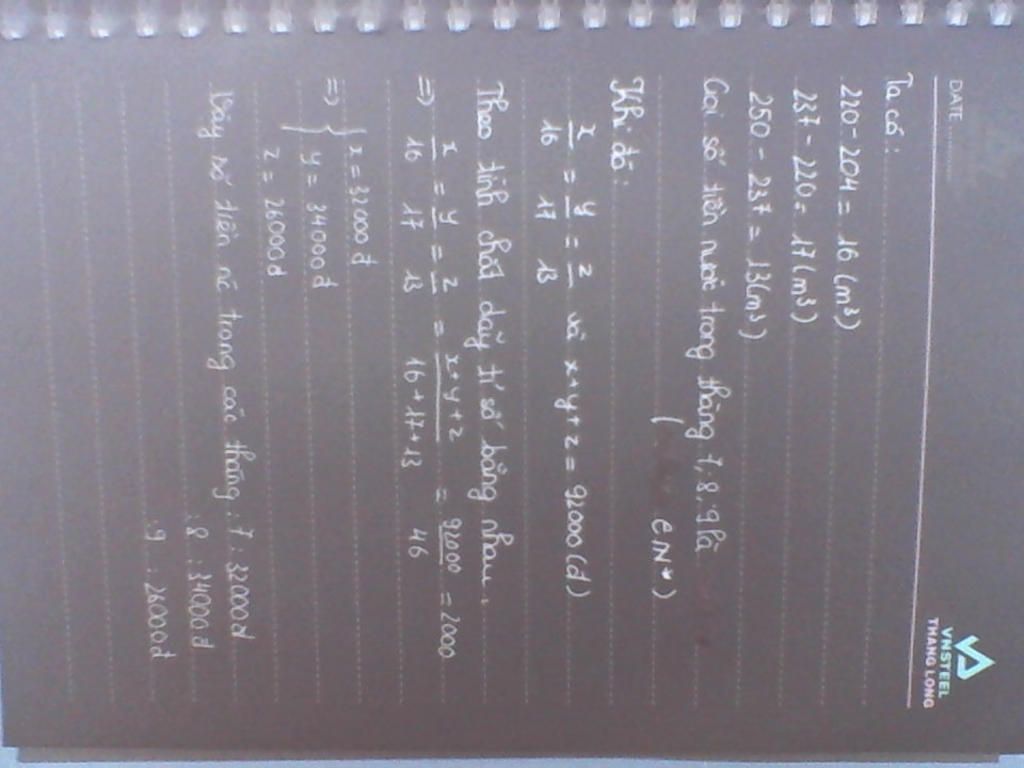 DATE
VNSTEEL
THANG LONG
Ta có:
220 - 204 = 16 (m³)
237 - 220 = 17 (m³)
250 - 237 = 13 (m³)
Gọi số tiền nước trong tháng 7, 8, 9 là
( ∈ N*)
Khi đó:
x/16 = y/17 = z/13 và x + y + z = 92000 (đ)
Theo tính chất dãy tỉ số bằng nhau,
=> x/16 = y/17 = z/13 = x+y+z/16+17+13 = 92000/46 = 2000
=> { x = 32000đ
y = 34000đ
z = 26000đ
Vậy số tiền nc trong các tháng: 7: 32000đ
8: 34000đ
9: 26000đ